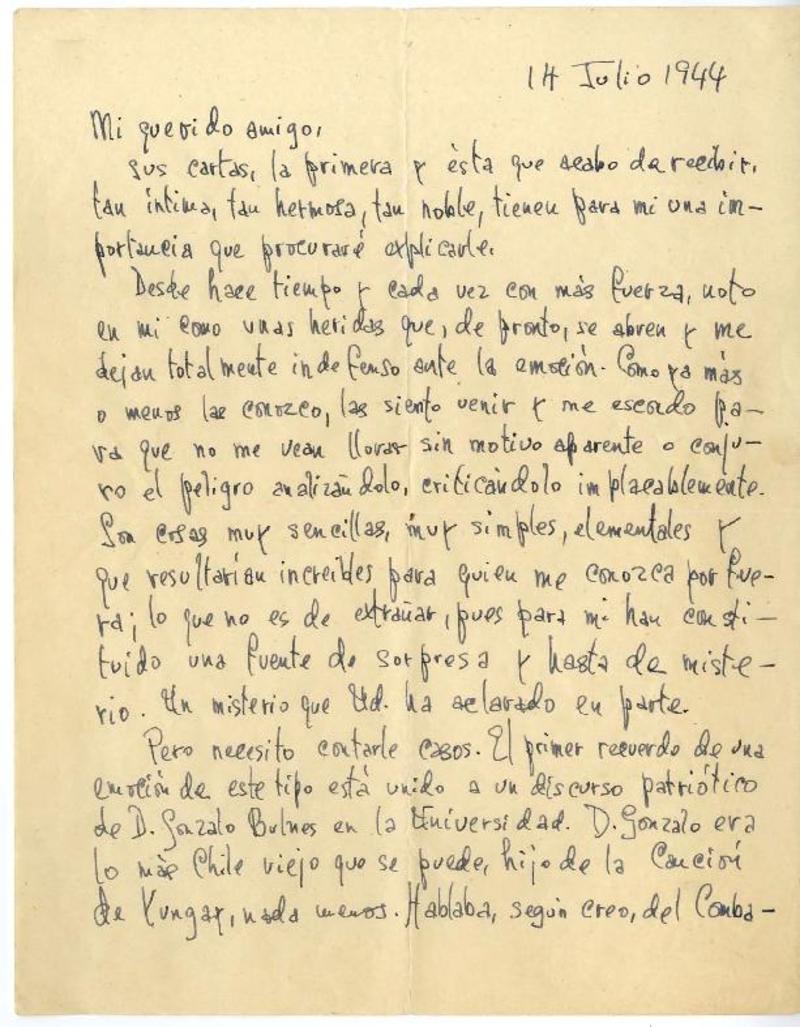 14 Julio 1944
Mi querido amigo,
sus cartas, la primera y ésta que acabo de recibir,
tan íntima, tan hermosa, tan noble, tienen para mi una im-
portancia que procuraré explicarle.
Desde hace tiempo y cada vez con más fuerza, noto
en mi como unas heridas que, de pronto, se abren y me
dejan totalmente indefenso ante la emoción. Como ya más
o menos las conozco, las siento venir y me escondo pa-
ra que no me vean llorar sin motivo aparente o conju-
ro el peligro analizándolo, criticándolo implacablemente.
Son cosas muy sencillas, muy simples, elementales y
que resultarían increíbles para quien me conozca por fue-
ra; lo que no es de extrañar, pues para mi han consti-
tuido una fuente de sorpresa y hasta de miste-
rio. Un misterio que Ud. ha aclarado en parte.
Pero necesito contarle casos. El primer recuerdo de una
emoción de este tipo está unido a un discurso patriótico
de D. Gonzalo Bulnes en la Universidad. D. Gonzalo era
lo más Chile viejo que se puede, hijo de la Canción
de Yungay, nada menos. Hablaba, según creo, del Comba-